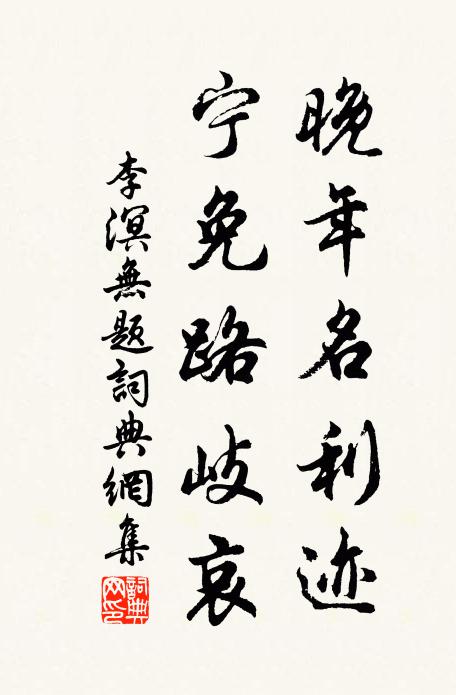 晚年名利迹
宁免路歧哀
李溟無题詞典網集
詞典
网印